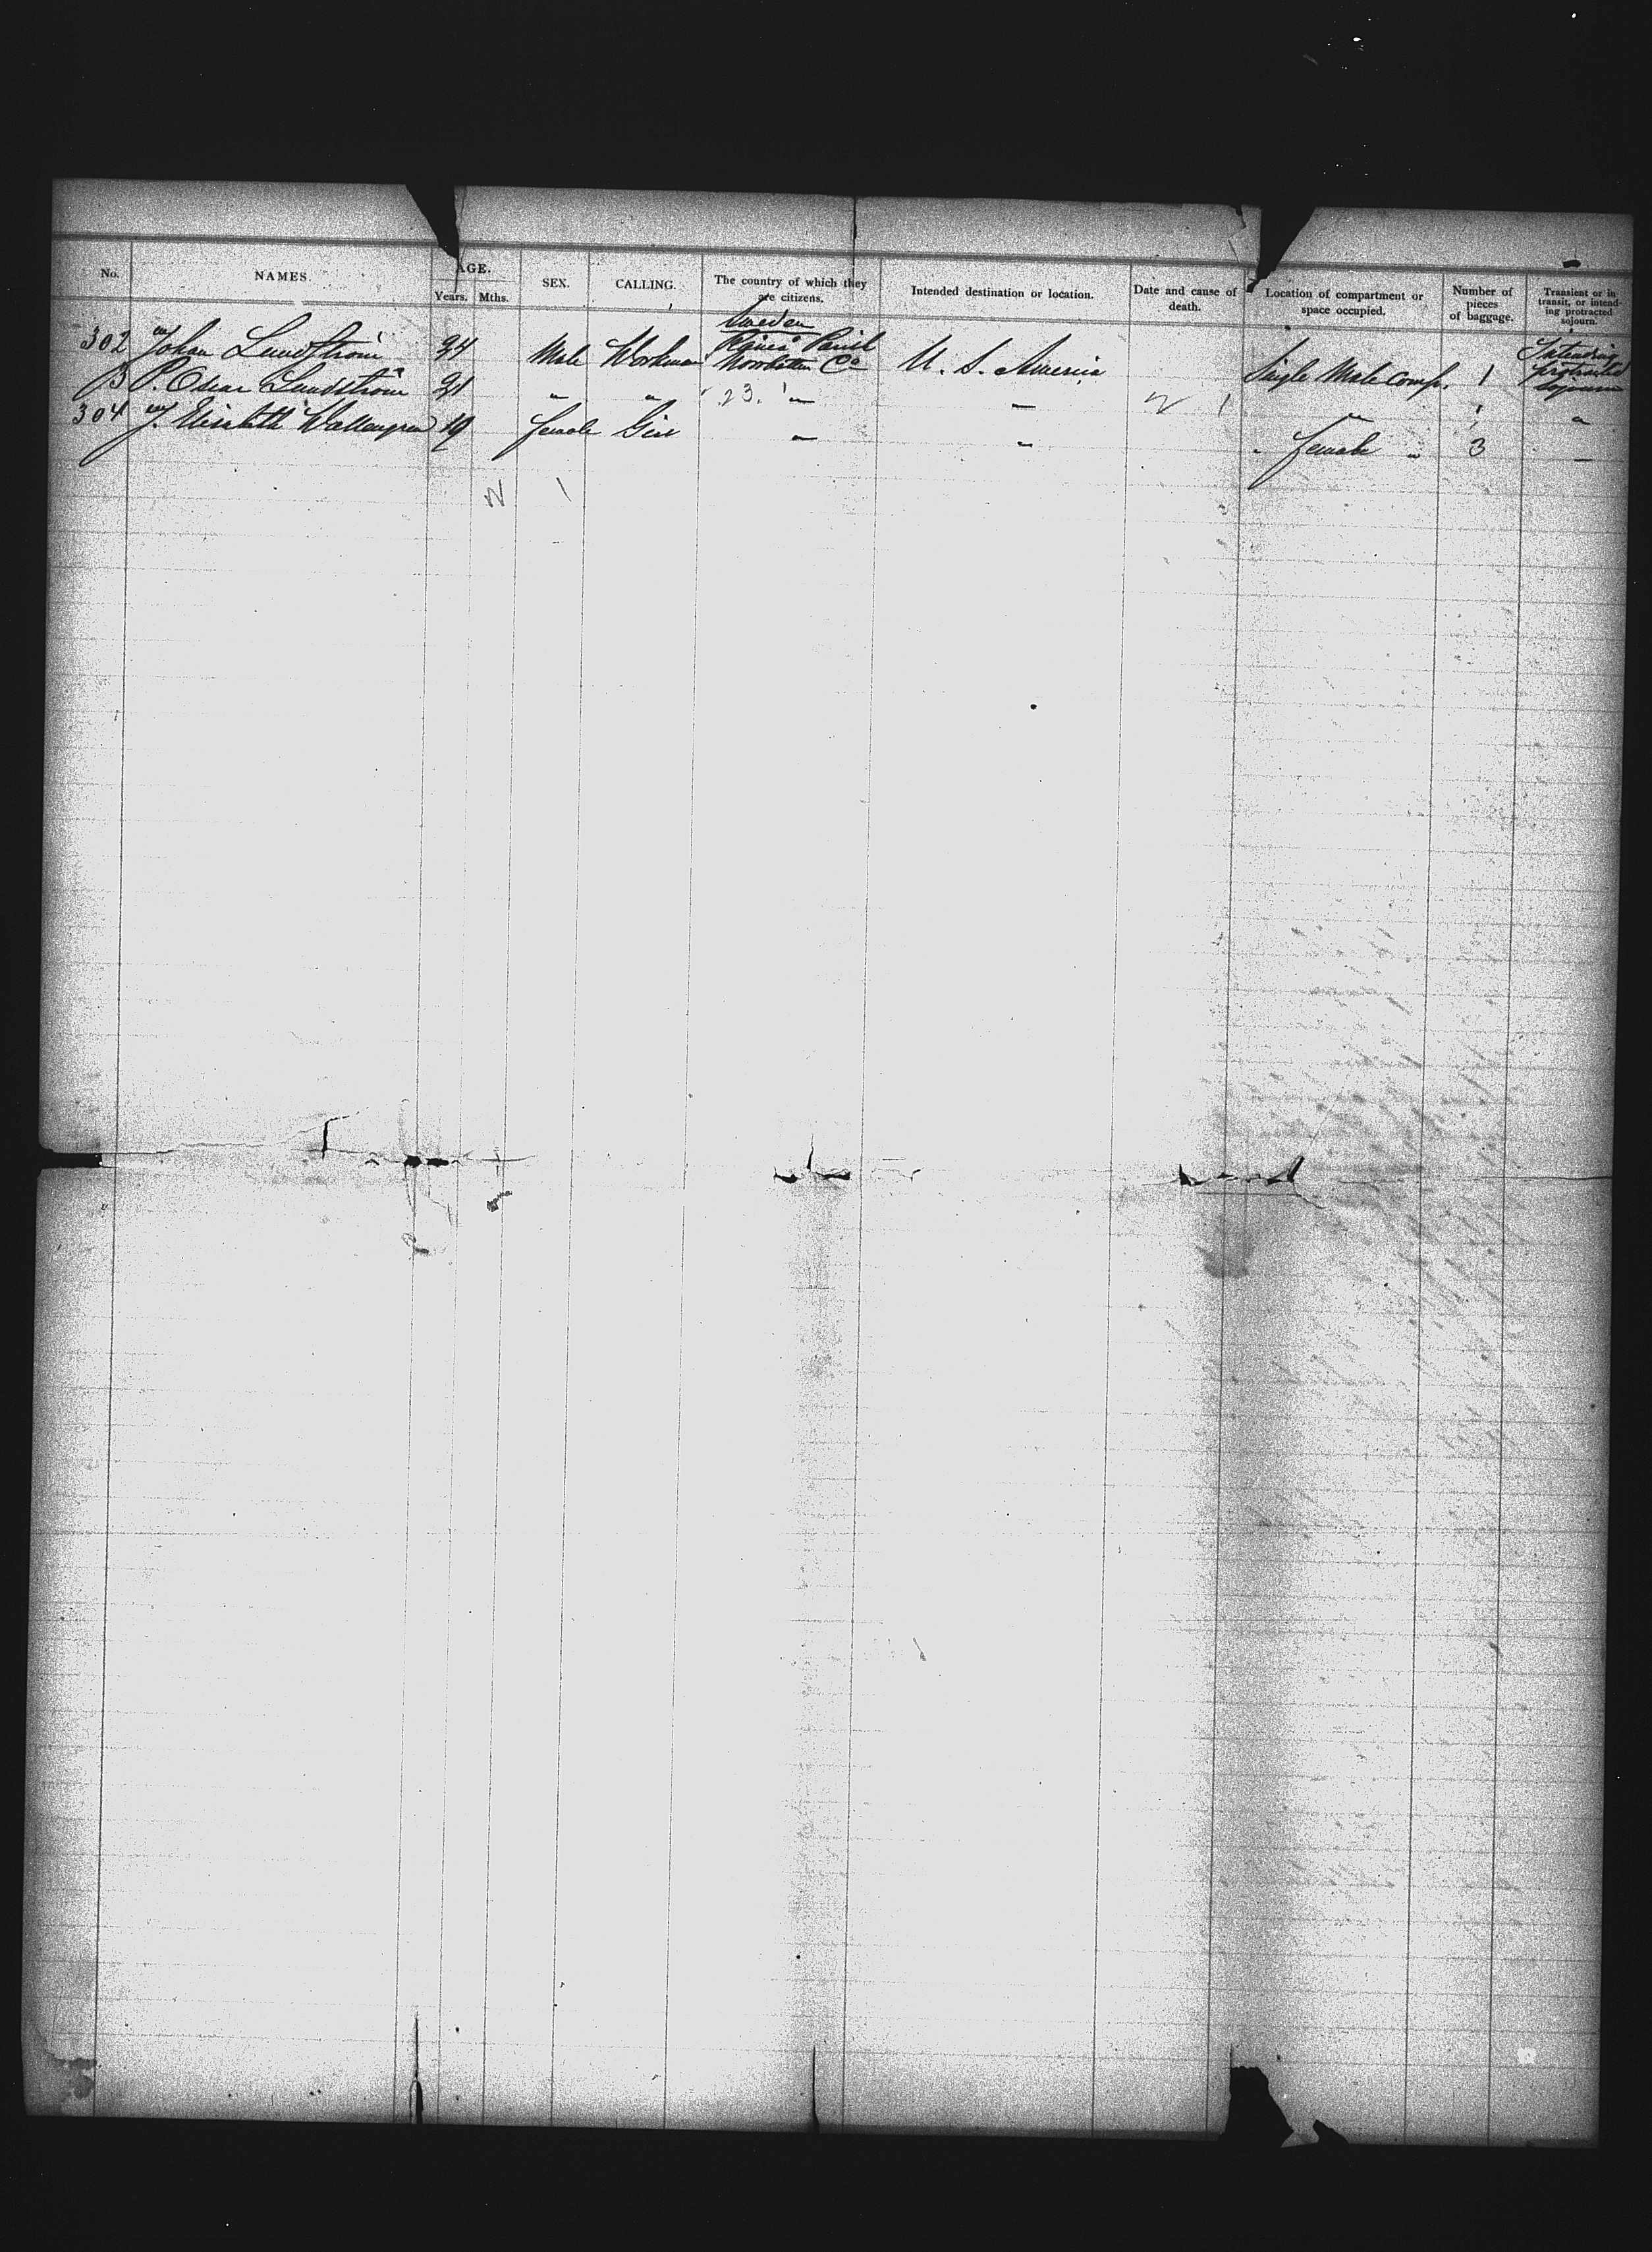 No. NAMES. AGE. SEX. CALLING. The country of which they are citizens. Intended destination or location. Date and cause of death. Location of compartment or space occupied. Number of pieces of baggage. Transient or in transit, or intending protracted sojourn.
Years. Mths.
Sweden
302 Johan Lundström 24 Male Workman Råneå Parish Norrbotten Co U. S. America Single Male Comp. 1 Intending protracted sojourn
3 P. Oscar Lundström 21 " " 23. 1 " " " 1 "
304 J. Elisabeth Wallengren 19 female Girl " " " female " 3 "